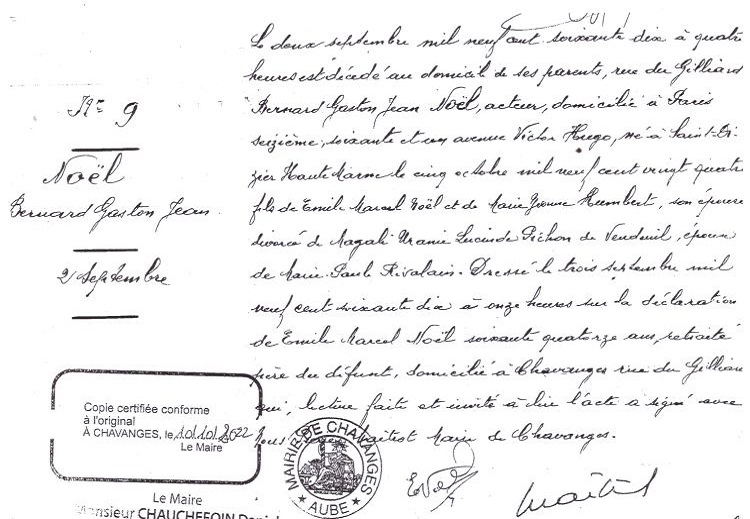 Le deux septembre mil neuf cent soixante dix à quatre
heures est décédé au domicil de ses parents, rue du Gilliard
Bernard Gaston Jean Noël, acteur, domicilié à Paris
seizième, soixante et un avenue Victor Hugo, né à Saint-Di-
zier Haute Marne le cinq octobre mil neuf cent vingt quatre
fils de Emile Marcel Noël et de Marie Yvonne Humbert, son épouse
divorcé de Magali Uranie Lucinde Pichon de Vendeuil, époux
de Marie-Paule Rivalain. Dressé le trois septembre mil
neuf cent soixante dix à onze heures sur la déclaration
de Emile Marcel Noël soixante quatorze ans, retraité
père du défunt, domicilié à Chavanges rue du Gilliard
qui, lecture faite et invité à lire l'acte a signé avec
Nous Maitrot Maire de Chavanges.
N° 9
Noël
Bernard Gaston Jean
2 septembre
Copie certifiée conforme
à l'original
À CHAVANGES, le 10/01/2022
Le Maire
MAIRIE DE CHAVANGES
AUBE
Le Maire
Monsieur CHAUCHEFOIN